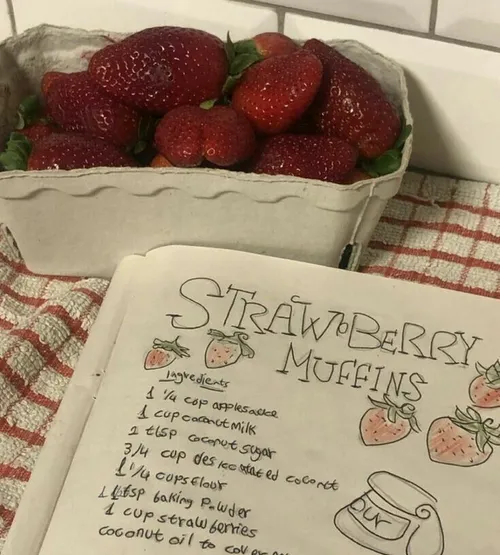 STRAWBERRY
MUFFINS
Ingredients
1 1/4 cup applesauce
1 cup coconut milk
2 tbsp coconut sugar
3/4 cup desiccated coconut
1 1/4 cups flour
1 tsp baking powder
1 cup strawberries
coconut oil to cover
our